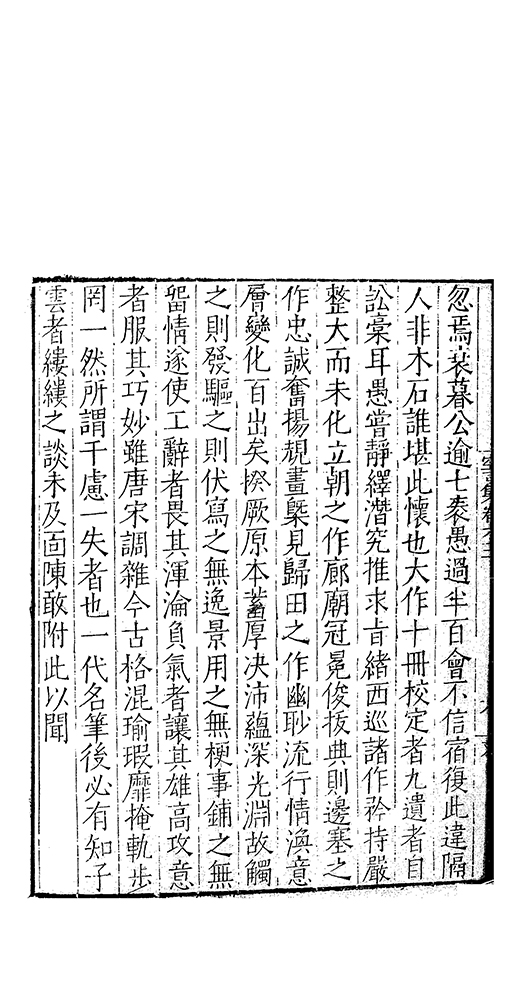 忽焉衰暮公逾七袠愚過半百會不信宿復此違隔
人非木石誰堪此懷也大作十冊校定者九遺者自
訟槀耳愚嘗靜繹潛究推求旨緒西巡諸作矜持嚴
整大而未化立朝之作廊廟冠冕俊拔典則邊塞之
作忠誠奮揚規畫槩見歸田之作幽眇流行情渙意
層變化百出矣揆厥原本蓄厚决沛蘊深光淵故觸
之則發驅之則伏寫之無逸景用之無梗事鋪之無
畱情遂使工辭者畏其渾淪負氣者讓其雄高攻意
者服其巧妙雖唐宋調雜今古格混瑜瑕靡掩軌步
罔一然所謂千慮一失者也一代名筆後必有知子
雲者縷縷之談未及靣陳敢附此以聞